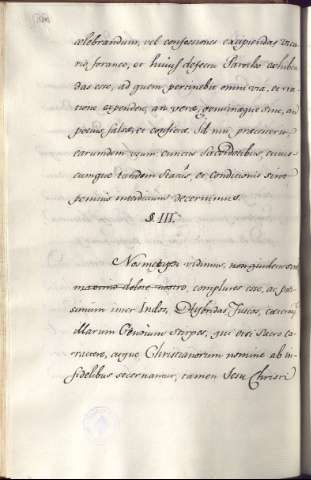 celebrandum, vel confessiones excipiendas Vica-
rio foraneo, et huius defectu Parocho exhiben-
das esse, ad quem pertinebit omni via, et ra-
tione expendere, an veræ, genuinæque sint, an
potius falsæ, et confictæ. Id nisi præcesserit
earumdem usum cunctis Sacerdotibus, cuius-
cumque tandem Status, et Conditionis sint
penitus interdictum decernimus.
§. III.
Nosmetipsi vidimus, non quidem sine
maximo dolore nostro, complures esse, ac po-
tissimum inter Indos, Hybridas, Fuscos,
illarum Gentium stirpes, qui etsi Sacro ca-
ractere, atque Christianorum nomine ab in-
fidelibus secernantur, tamen Jesu Christi